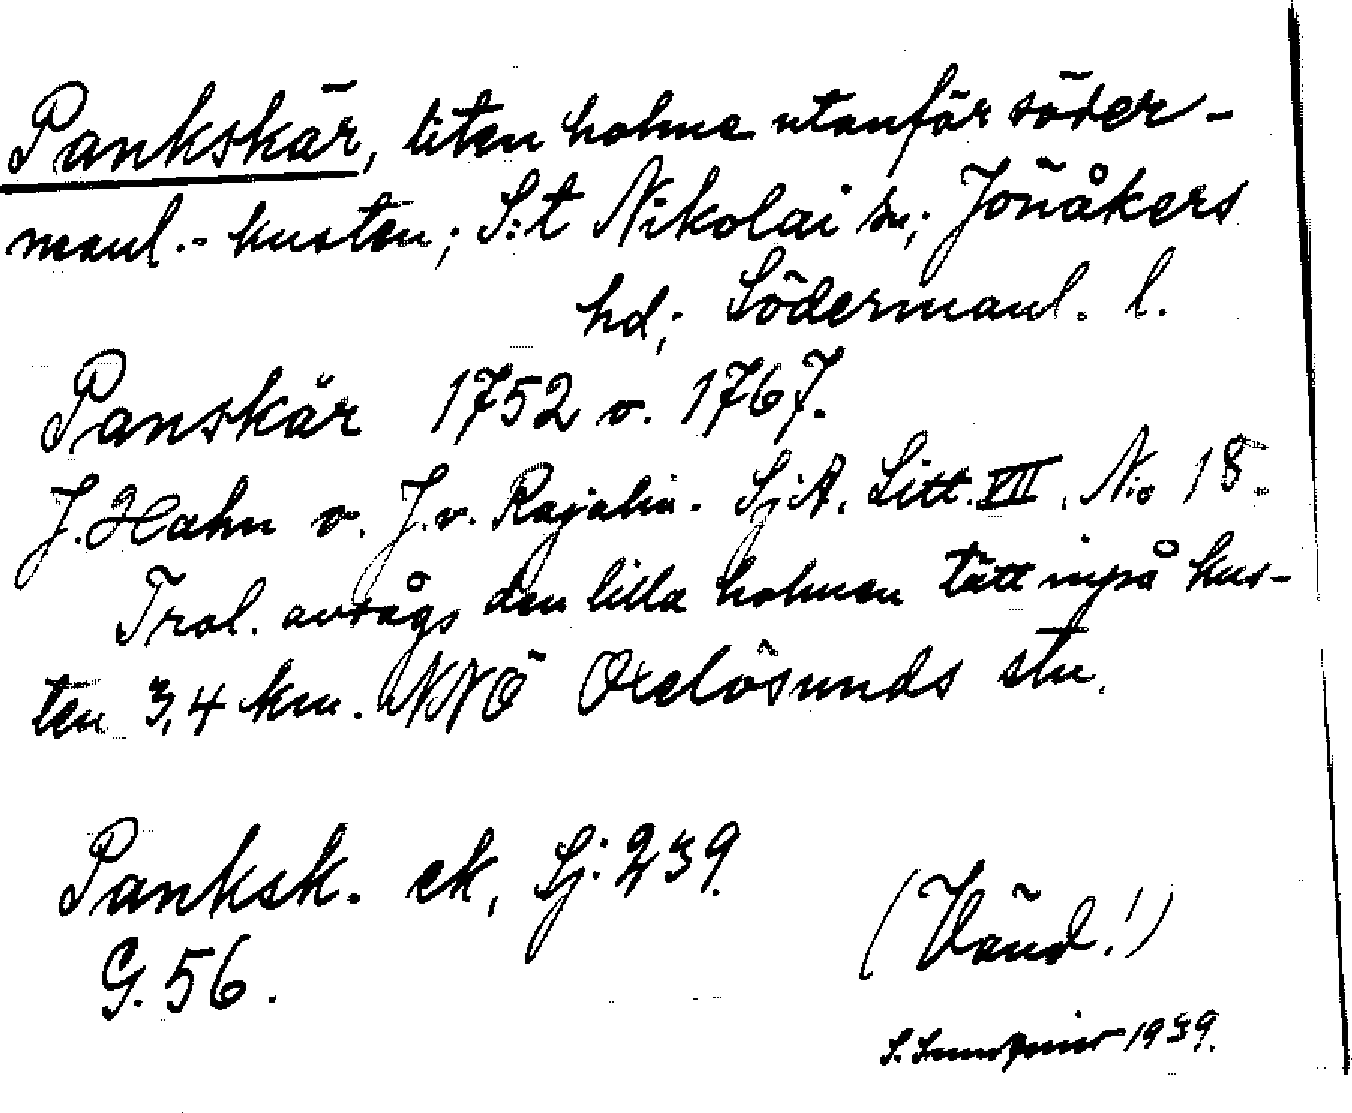 Pankskär, liten holme utanför söder-
manl.- kusten; S:t Nikolai sn; Jönåkers
hd; Södermanl. l.
Panskär 1752 o. 1767.
J. Hahn o. J. v. Rajalin. SjA. Litt. VII. No 18.
Trol. avsågs den lilla holmen tätt inpå kus-
ten 3,4 km. NNÖ Oxelösunds stn.
Panksk. ek, Sj. 239.
G. 56.
(Vänd!)
S. 1939.